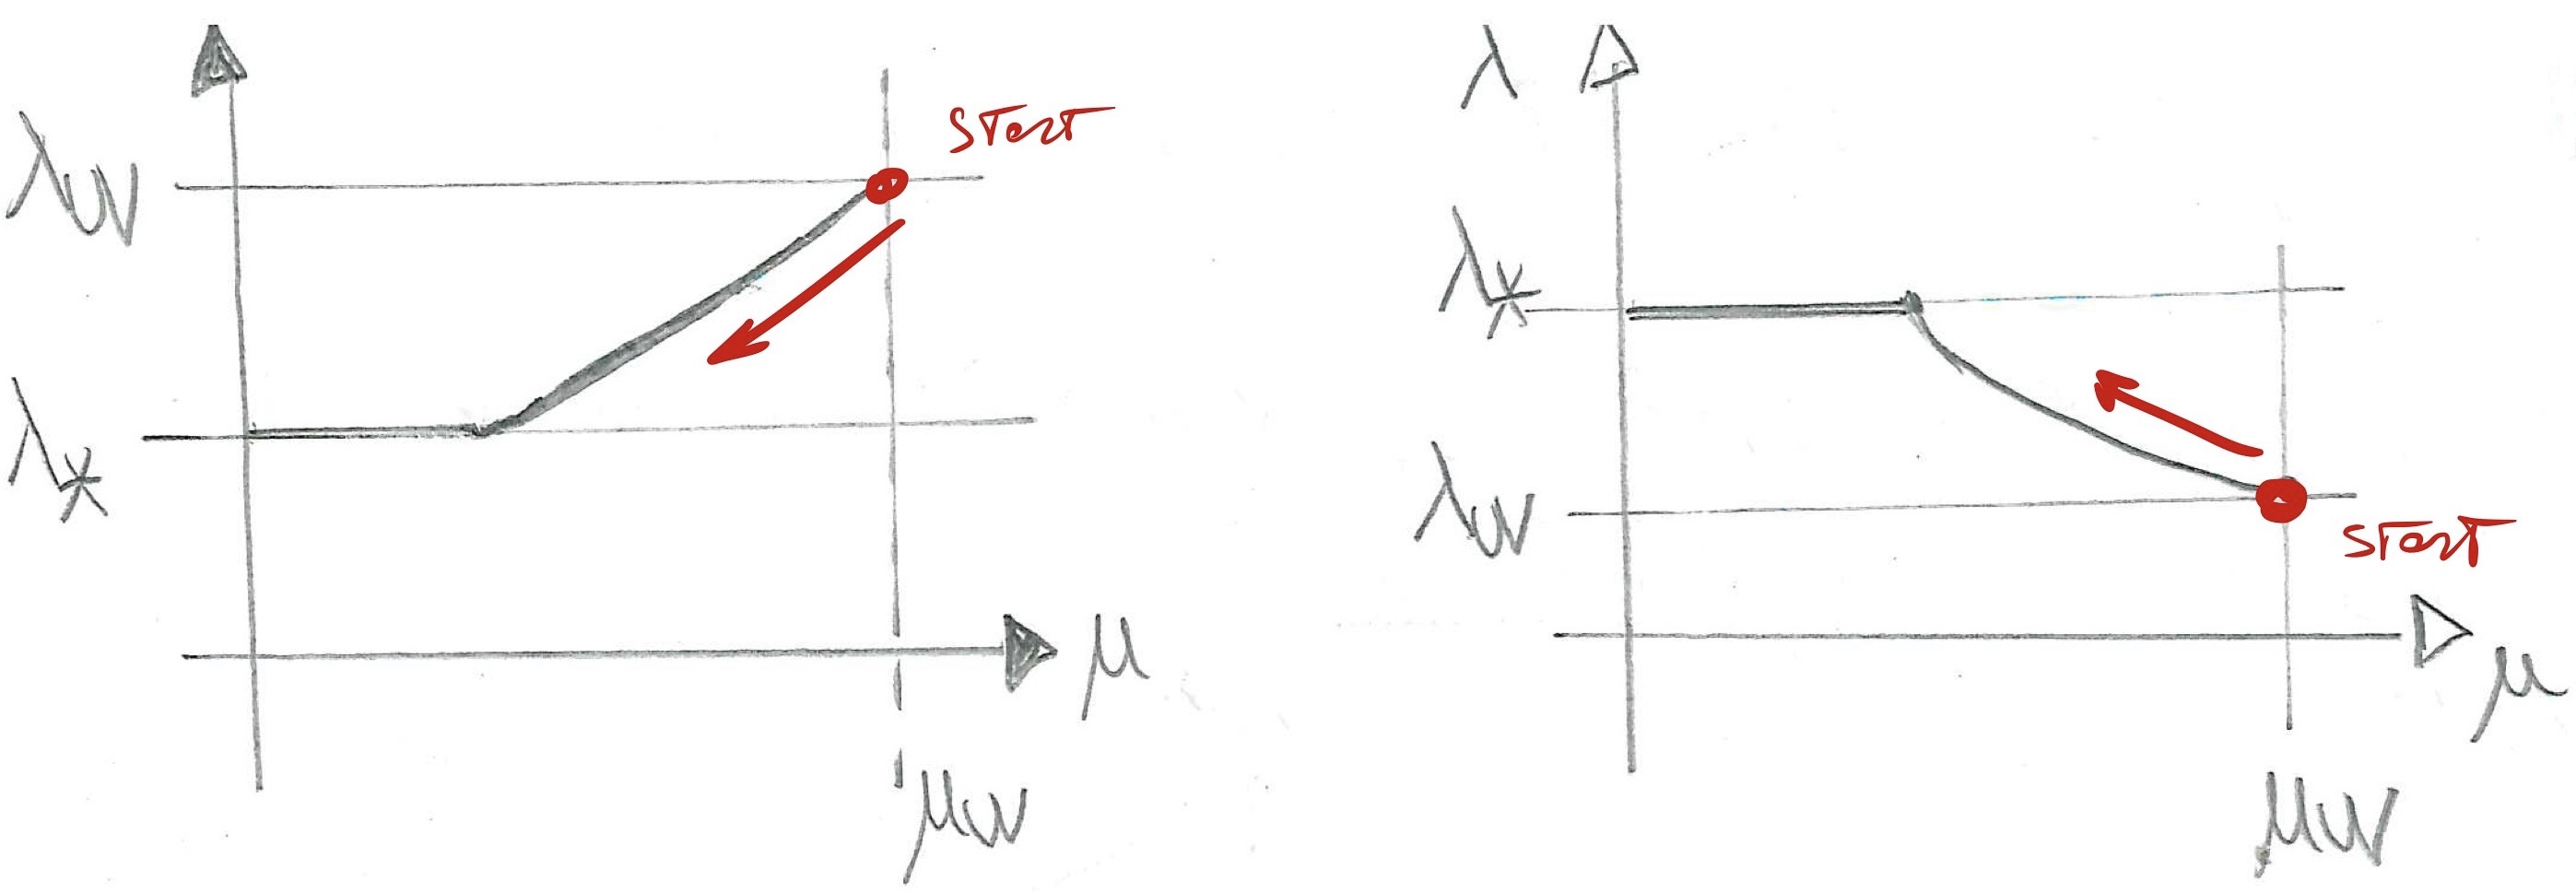 λUV
START
λ*
μ
μUV
λ
λ*
λUV
START
μ
μUV